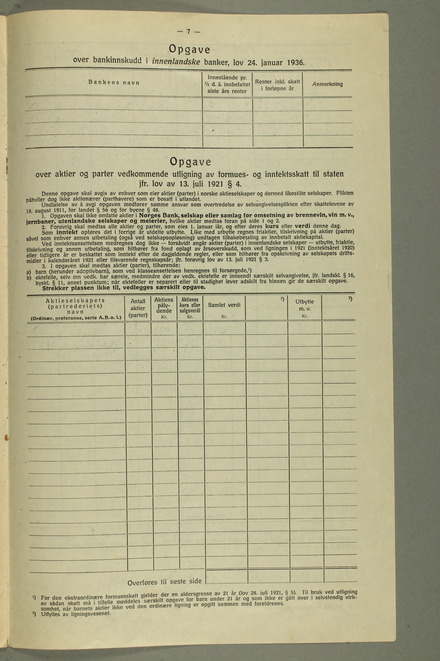 — 7 —
Opgave
over bankinnskudd i innenlandske banker, lov 24. januar 1936.
Bankens navn
Innestående pr.
¹/₁ d. å. innbefattet
siste års renter
Renter inkl. skatt
i forløpne år
Anmerkning
Opgave
over aktier og parter vedkommende utligning av formues- og inntektsskatt til staten
jfr. lov av 13. juli 1921 § 4.
Denne opgave skal avgis av enhver som eier aktier (parter) i norske aktieselskaper og dermed likestilte selskaper. Plikten
påhviler dog ikke aktionærer (parthavere) som er bosatt i utlandet.
Unnlatelse av å avgi opgaven medfører samme ansvar som overtredelse av selvangivelsesplikten efter skattelovene av
18. august 1911, for landet § 56 og for byene § 48.
1. Opgaven skal ikke omfatte aktier i Norges Bank, selskap eller samlag for omsetning av brennevin, vin m. v.,
jernbaner, utenlandske selskaper og meierier, hvilke aktier medtas foran på side 1 og 2.
2. Forøvrig skal medtas alle aktier og parter, som eies 1. januar iår, og efter deres kurs eller verdi denne dag.
Som inntekt opføres det i forrige år utdelte utbytte. Like med utbytte regnes friaktier, tilskrivning på aktier (parter)
såvel som enhver annen utbetaling (også ved selskapsopløsning) undtagen tilbakebetaling av innbetalt aktiekapital.
Ved inntektsansettelsen medregnes dog ikke — forsåvidt angår aktier (parter) i innenlandske selskaper — utbytte, friaktie,
tilskrivning og annen utbetaling, som hitrører fra fond oplagt av årsoverskudd, som ved ligningen i 1921 (inntektsåret 1920)
eller tidligere år er beskattet som inntekt efter de dagjeldende regler, eller som hitrører fra opskrivning av selskapets drifts-
midler i kalenderåret 1921 eller tilsvarende regnskapsår, jfr. forøvrig lov av 13. juli 1921 § 3.
3. I opgaven skal medtas aktier (parter), tilhørende:
a) barn (herunder adoptivbarn), som ved klasseansettelsen henregnes til forsørgede,¹)
b) ektefelle, selv om vedk. har særeie, medmindre der av vedk. ektefelle er innsendt særskilt selvangivelse, jfr. landskl. § 16,
byskl. § 11, annet punktum; når ektefeller er separert eller til stadighet lever adskilt fra hinnen gir de særskilt opgave.
Strekker plassen ikke til, vedlegges særskilt opgave.
Aktieselskapets
(partrederiets)
navn
(Ordinær, preferanse, serie A. B. o. l.)
Antall
aktier
(parter)
Aktiens
påly-
dende
Kr.
Aktiens
kurs eller
salgsverdi
Kr.
Samlet verdi
Kr.
²)
Utbytte
m. v.
Kr.
²)
Overføres til neste side
¹) For den ekstraordinære formuesskatt gjelder der en aldersgrense av 21 år (lov 28. juli 1921, § 5). Til bruk ved utligning
av sådan skatt må i tilfelle meddeles særskilt opgave for barn under 21 år og som ikke er gått over i selvstendig virk-
somhet, når barnets aktier ikke ved den ordinære ligning er opgitt sammen med foreldrenes.
²) Utfylles av ligningsvesenet.